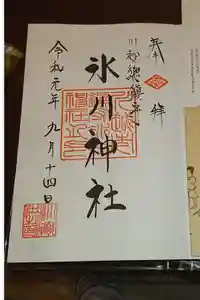 奉拝
川越総鎮守
氷川神社
令和元年九月十四日